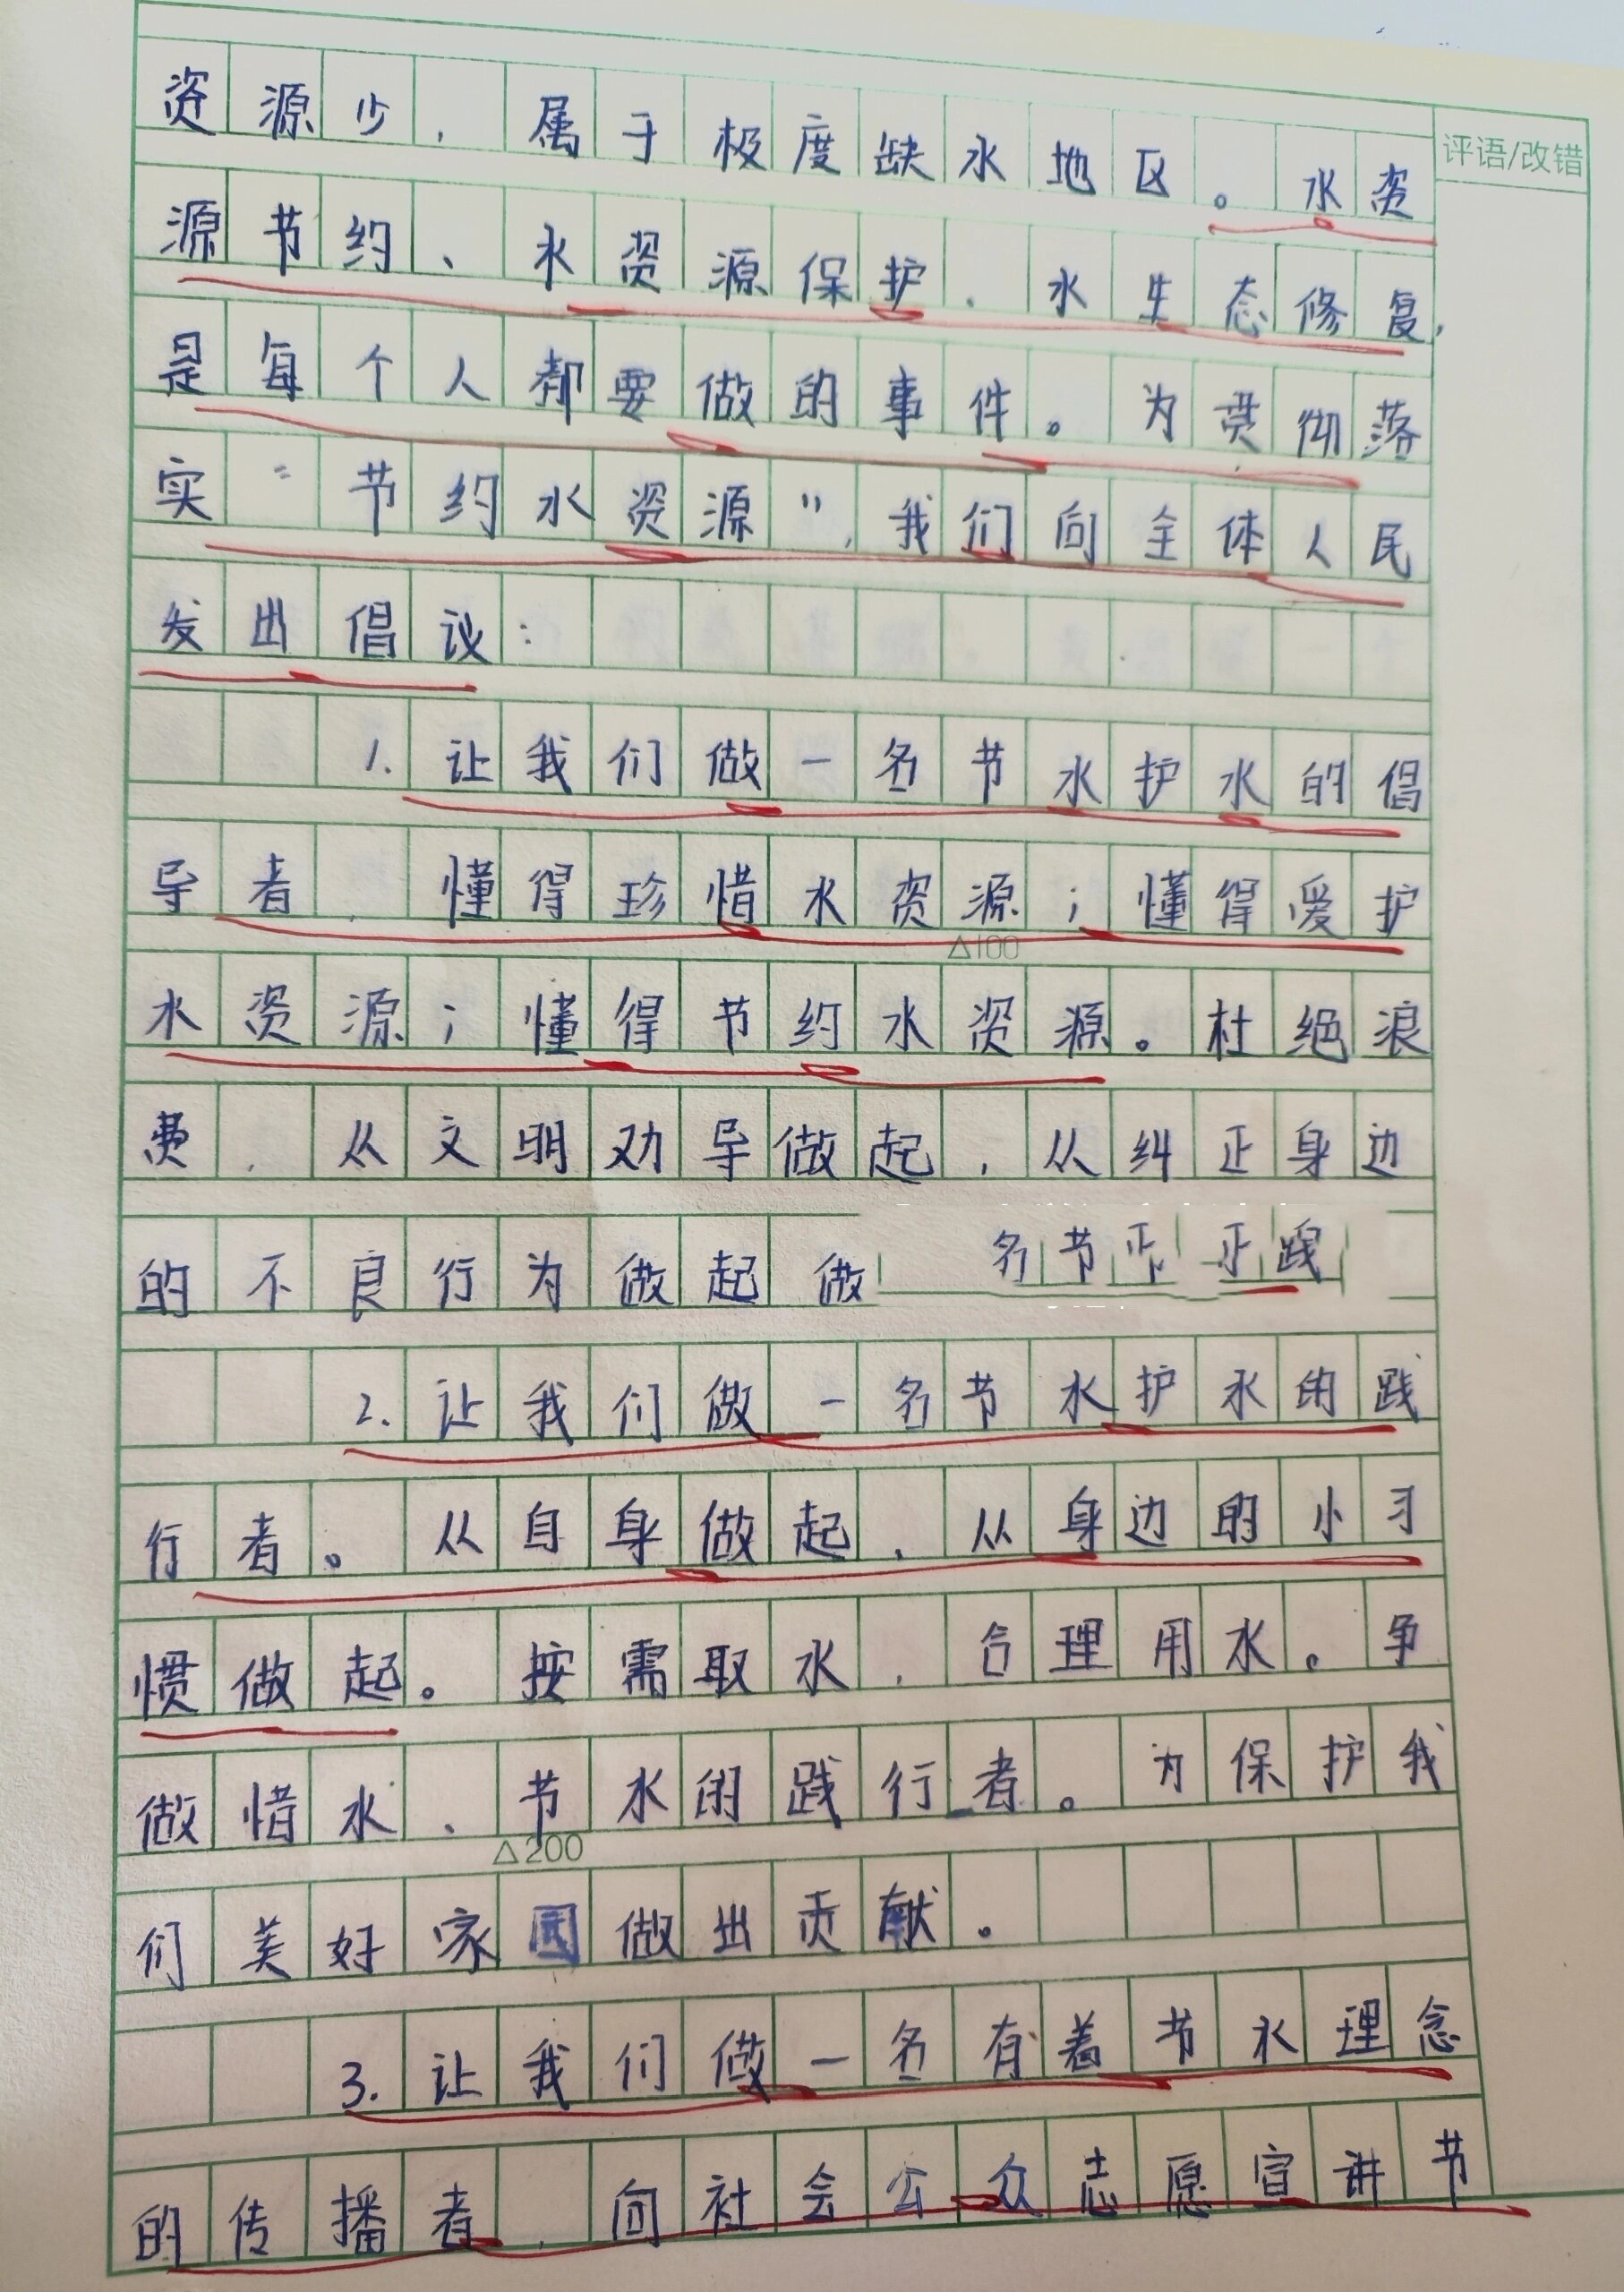 资源少，属于极度缺水地区。水资
评语/改错
源节约、水资源保护、水生态修复，
是每个人都要做的事件。为贯彻落
实“节约水资源”，我们向全体人民
发出倡议：
1.让我们做一名节水护水的倡
导者，懂得珍惜水资源；懂得爱护
△100
水资源；懂得节约水资源。杜绝浪
费，从文明劝导做起，从纠正身边
的不良行为做起 做 名节
2.让我们做一名节水护水的践
行者。从自身做起，从身边的小习
惯做起。按需取水，合理用水。争
做惜水、节水的践行者。为保护我
△200
们美好家园做出贡献。
3.让我们做一名有着节水理念
的传播者，向社会公众志愿宣讲节